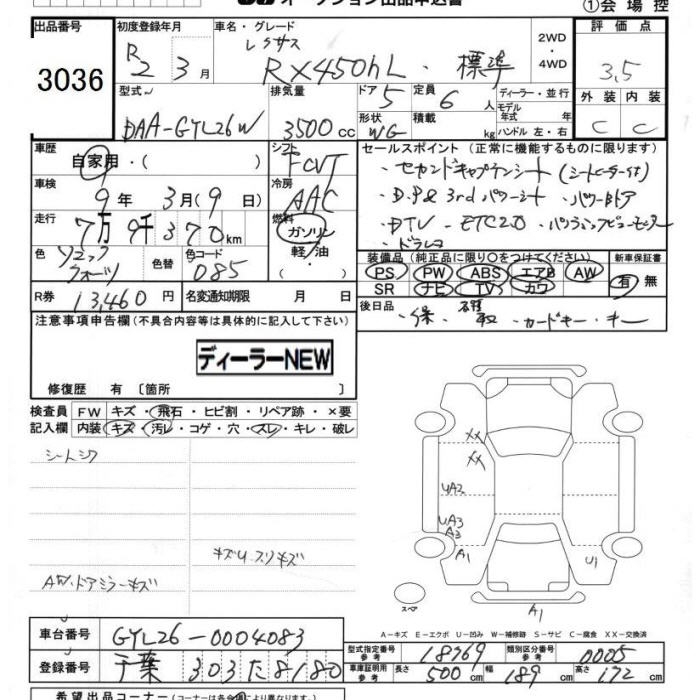 オークション出品申込書
①会場控
出品番号
3036
初度登録年月
R2 3月
車名・グレード
レクサス
RX450hL・標準
2WD
・
4WD
評価点
3.5
外装 内装
C C
型式
DAA-GYL26W
排気量
3500cc
ドア 5
定員 6人
形状 WG
積載 kg
ディーラー・並行
モデル年式 年
ハンドル 左・右
車歴
自家用・( )
シフト
FCVT
車検
9年 3月(9日)
冷房
AAC
走行
7万9千370km
燃料
ガソリン
軽油
・( )
色
ソニック
クォーツ
色替
色コード
085
R券 13,460円
名変通期限 月 日
セールスポイント(正常に機能するものに限ります)
・セカンドキャプテンシート(シートヒーター付)
・D.P&3rdパワーシート ・パワーBドア
・DTV ・ETC2.0 ・パノラミックビューモニター
・ドラレコ
装備品(純正品に限り○をつけてください)
新車保証書
PS PW ABS エアB AW
SR ナビ TV カワ
有・無
後日品
・保 ・取 ・カードキー・キー
注意事項申告欄(不具合内容等は具体的に記入して下さい)
ディーラーNEW
修復歴 有〔箇所 〕
検査員記入欄
FW キズ・飛石・ヒビ割・リペア跡・×要
内装 キズ・汚レ・コゲ・穴・スレ・キレ・破レ
シートシワ
キズU.スリキズ
AW.ドアミラーキズ
XX
XX
UA2
UA3
A3
A1
U1
A1
スペア
A-キズ E-エクボ U-凹み W-補修跡 S-サビ C-腐食 XX-交換済
車台番号 GYL26-0004083
登録番号 千葉 303 た 8180
型式指定番号 参考 18769
類別区分番号 参考 0005
車庫証明用 参考 長さ 500cm 幅 189cm 高さ 172cm
希望出品コーナー(コーナーは各会場により異なります)